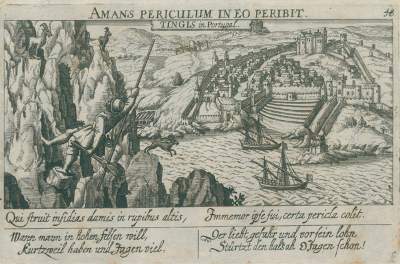 AMANS PERICULUM IN EO PERIBIT.
TINGIS in Portugal.
Qui struit insidias damis in rupibus altis,
Immemor ipse sui, certa pericla colit.
Wann mann in hohen felsen will,
Kurtzweil haben und Jagen viel.
Der liebt gefahr und vor sein lohn
Stürtzt den halß ab
Jagen schon!